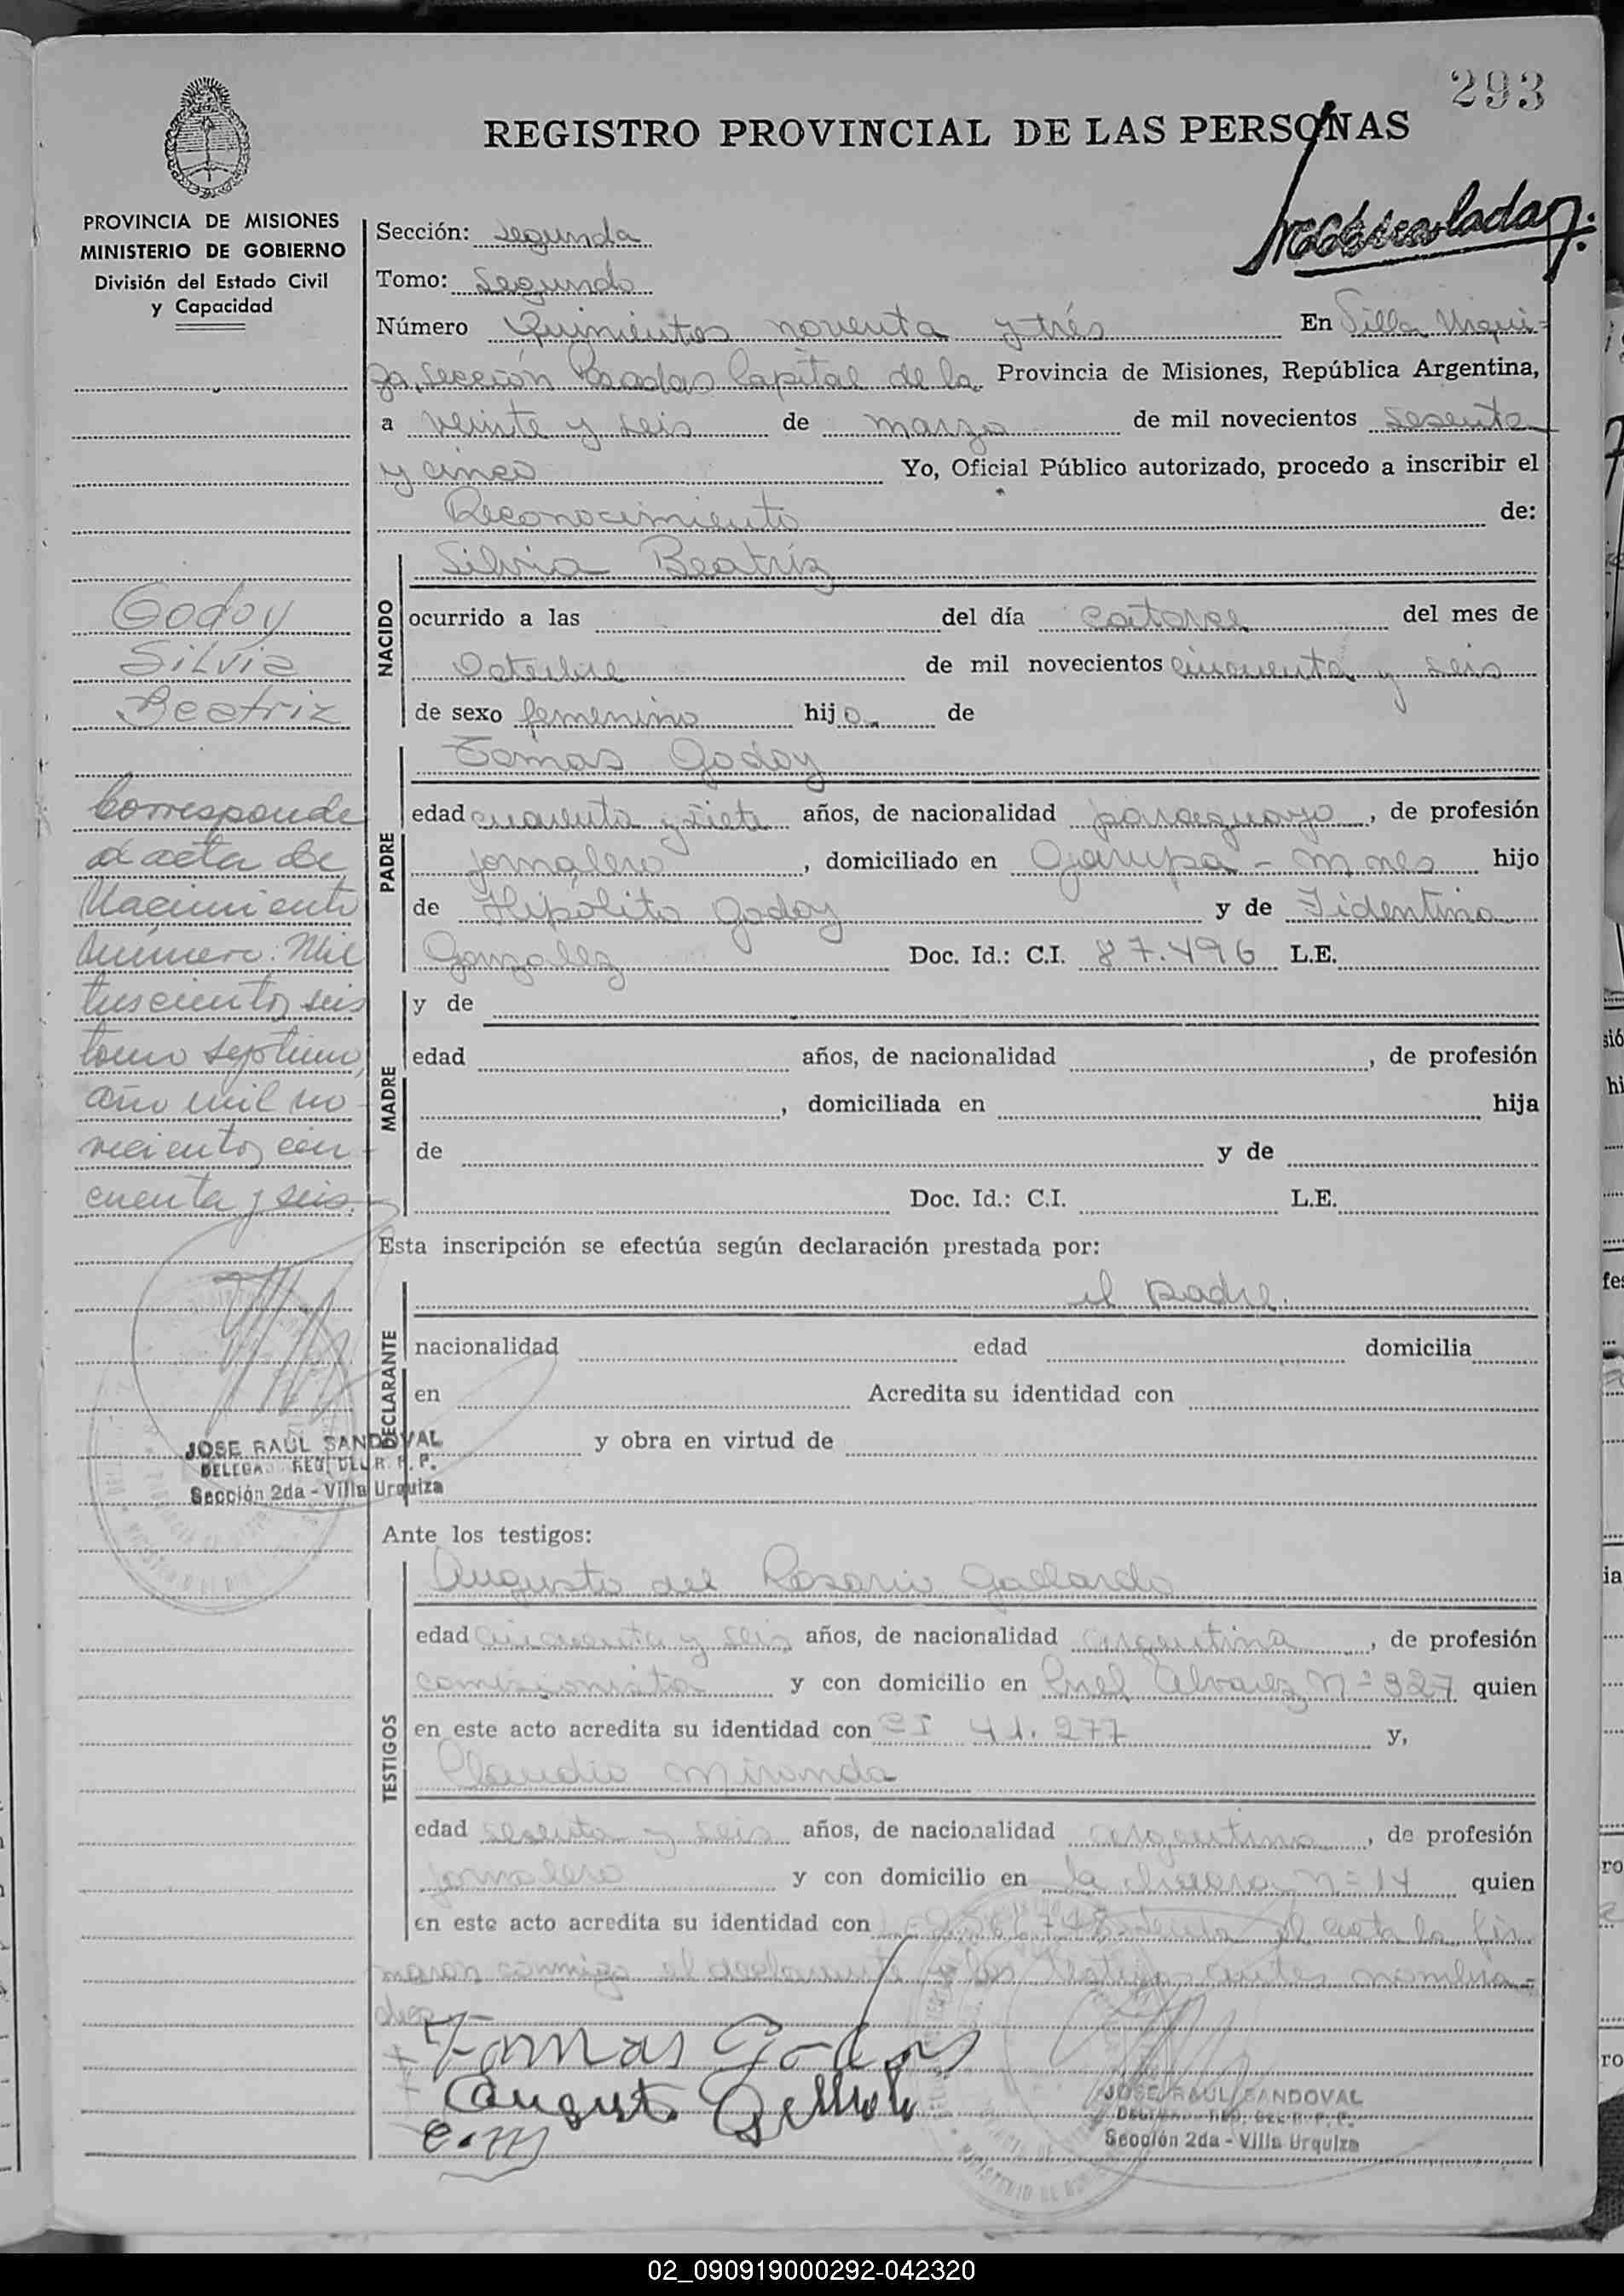 293
REGISTRO PROVINCIAL DE LAS PERSONAS
PROVINCIA DE MISIONES
MINISTERIO DE GOBIERNO
División del Estado Civil
y Capacidad
Sección: segunda
Tomo: Segundo
Número Quinientos noventa y trés En Villa Urqui-
za, Sección Posadas Capital de la Provincia de Misiones, República Argentina,
a veinte y seis de marzo de mil novecientos sesenta
y cinco Yo, Oficial Público autorizado, procedo a inscribir el
Reconocimiento de:
NACIDO
Silvia Beatríz
ocurrido a las del día catorce del mes de
Octubre de mil novecientos cincuenta y seis
de sexo femenino hija de
Godoy
Silvia
Beatriz
PADRE
Tomas Godoy
edad cuarenta y siete años, de nacionalidad paraguayo, de profesión
jornalero, domiciliado en Garupa - Mnes hijo
de Hipólito Godoy y de Fidentina
Gonzalez Doc. Id.: C.I. 87.496 L.E.
Corresponde
al acta de
Nacimiento
número: Mil
trescientos seis
tomo septimo,
año mil no-
vecientos cin-
cuenta y seis.
MADRE
y de
edad años, de nacionalidad , de profesión
, domiciliada en hija
de y de
Doc. Id.: C.I. L.E.
Esta inscripción se efectúa según declaración prestada por:
DECLARANTE
el padre.
nacionalidad edad domicilia
en Acredita su identidad con
y obra en virtud de
JOSE RAUL SANDOVAL
DELEGA. REG. DEL R. P. P.
Sección 2da - Villa Urquiza
Ante los testigos:
TESTIGOS
Augusto del Rosario Gallardo
edad cincuenta y seis años, de nacionalidad argentina, de profesión
comisionista y con domicilio en Cnel Alvarez Nº 327 quien
en este acto acredita su identidad con CI 41.277 y,
Claudio Miranda
edad sesenta y seis años, de nacionalidad argentino, de profesión
jornalero y con domicilio en la chacra Nº 14 quien
en este acto acredita su identidad con el acta la fir-
maron conmigo el declarante y los testigos antes nombra-
dos
Tomas Godoy
Augusto Gallardo
C.M
JOSE RAUL SANDOVAL
DELEGA. REG. DEL R. P. P.
Sección 2da - Villa Urquiza
02_090919000292-042320